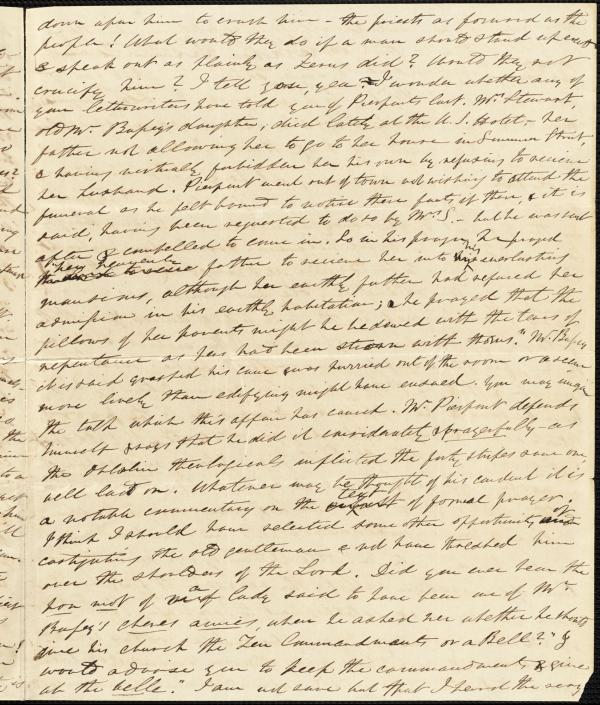 down upon him to crush him - the priests as forward as the
people! What would they do if a man should stand up erect
& speak out as plainly as Jesus did? Would they not
crucify him? I tell you, yea. I wonder whether any of
your letterwriters have told you of Pierpont's last. Mrs. Stewart,
old Mr. Bussey's daughter, died lately at the U.S. Hotel, - her
father not allowing her to go to her house in Summer Street,
& having virtually forbidden her his own by refusing to receive
her husband. Pierpont went out of town not wishing to attend the
funeral as he felt bound to notice these facts if there, & it is
said, having been requested to do so by Mrs. S. - but he was sent
after & compelled to come in. So in his prayer he prayed
her heavenly father to receive her into his everlasting
mansions, although her earthly father had refused her
admission in his earthly habitation; & he prayed that the
pillows of her parents might be bedewed with the tears of
repentance as hers had been strewn with thorns." Mr. Bussey
it is said grasped his cane & was hurried out of the room or a scene
more lively than edifying might have ensued. You may imagine
the talk which this affair has caused. Mr. Pierpont defends
himself & says that he did it considerately & prayerfully - as
the Oberlin theologicals inflicted the forty stripes save one,
well laid on. Whatever may be thought of his conduct it is
a notable commentary on the text of formal prayer.
I think I should have selected some other opportunity of
castigating the old gentleman & not have threshed him
over the shoulders of the Lord. Did you ever hear the
bon mot of a lady said to have been one of Mr.
Bussey's chères amies, when he asked her whether he should
give his church the Ten Commandments or a Bell? "I
would advise you to keep the commandments & give
up the belle." I am not sure but that I send the very